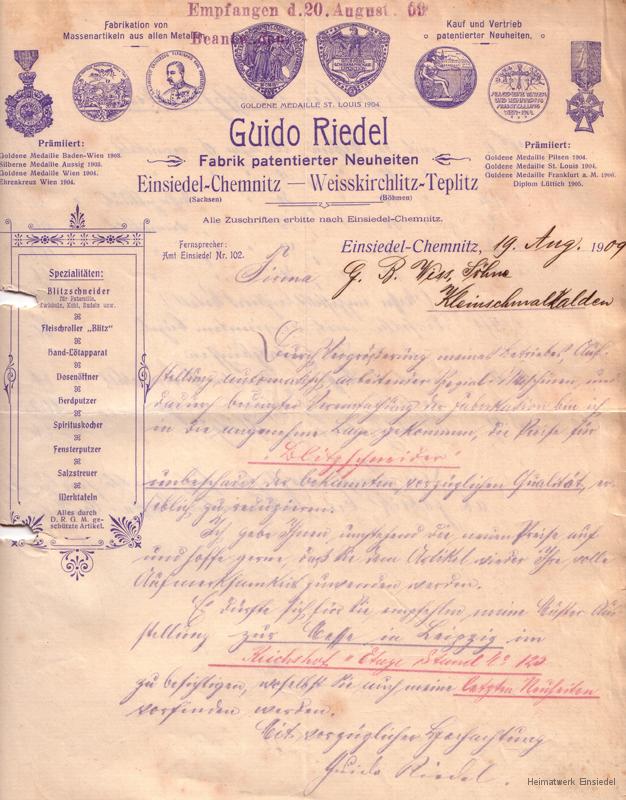 Empfangen d. 20. August. 09
Fabrikation von
Massenartikeln aus allen Metallen
Kauf und Vertrieb
patentierter Neuheiten.
GOLDENE MEDAILLE ST. LOUIS 1904.
Prämiiert:
Goldene Medaille Baden-Wien 1903.
Silberne Medaille Aussig 1903.
Goldene Medaille Wien 1904.
Ehrenkreuz Wien 1904.
Prämiiert:
Goldene Medaille Pilsen 1904.
Goldene Medaille St. Louis 1904.
Goldene Medaille Frankfurt a. M. 1906.
Diplom Lüttich 1905.
Guido Riedel
Fabrik patentierter Neuheiten
Einsiedel-Chemnitz — Weisskirchlitz-Teplitz
(Sachsen) (Böhmen)
Alle Zuschriften erbitte nach Einsiedel-Chemnitz.
Fernsprecher:
Amt Einsiedel Nr. 102.
Einsiedel-Chemnitz, 19. Aug. 1909
Firma G. B. Söhne
Kleinschmalkalden
Spezialitäten:
Blitzschneider
für Fadennudeln,
Fleischroller „Blitz"
Hand-Lötapparat
Dosenöffner
Herdputzer
Spirituskocher
Fensterputzer
Salzstreuer
Werktafeln
Alles durch
D. R. G. M. ge-
schützte Artikel.
Durch Vergrößerung meines Betriebes, Auf-
stellung automatisch arbeitender Spezial-Maschinen, und
dadurch bedingter Vereinfachung der Fabrikation bin ich
in die angenehme Lage gekommen, die Preise für
„Blitzschneider"
unbeschadet der bekannten, vorzüglichen Qualität, er-
heblich zu reduzieren.
Ich gebe Ihnen umstehend die neuen Preise auf
und hoffe gerne, daß Sie dem Artikel wieder Ihre volle
Aufmerksamkeit zuwenden werden.
Es dürfte sich für Sie empfehlen meine Muster Aus-
stellung zur Messe in Leipzig im
Reichshof Etage Stand No 122
zu besichtigen, woselbst Sie auch meine letzten Neuheiten
vorfinden werden.
Mit vorzüglicher Hochachtung
Guido Riedel.
Heimatwerk Einsiedel